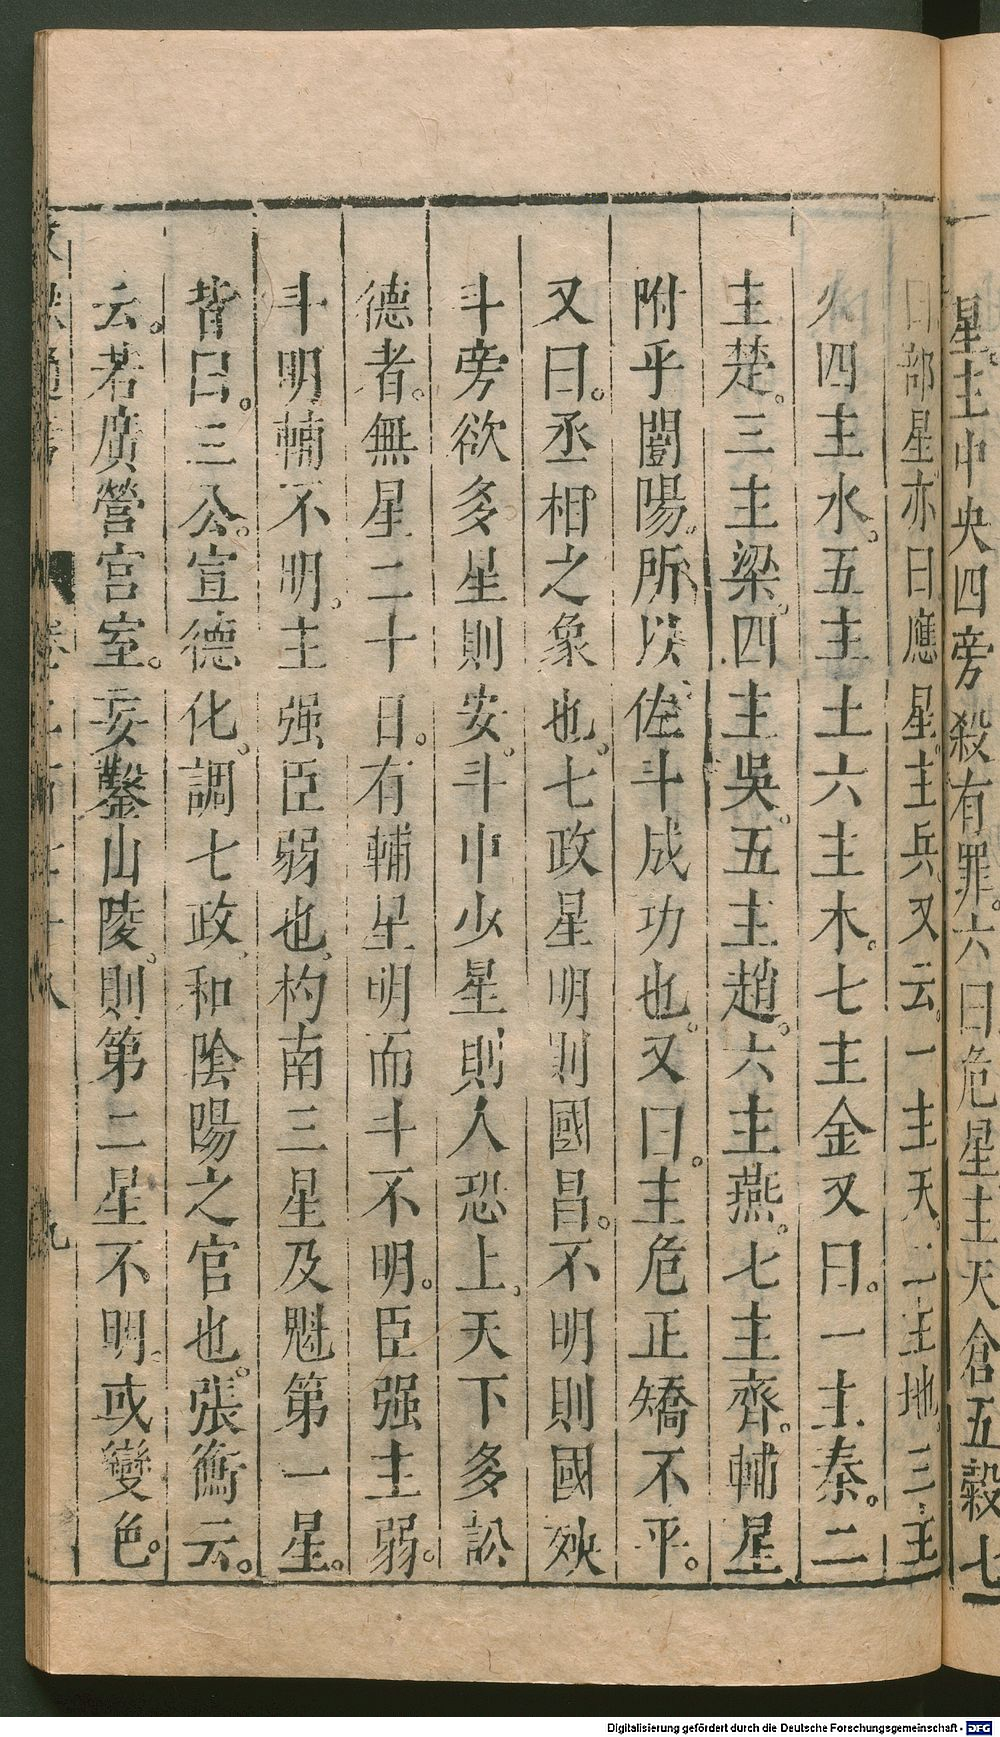 星。主中央四旁殺有罪。六曰危星主天倉五穀七
曰部星亦曰應星。主兵。又云。一主天。二主地。三主
火四主水。五主土六主木。七主金又曰。一主秦。二
主楚。三主梁。四主吳。五主趙。六主燕。七主齊。輔星
附乎闓陽。所以佐斗成功也。又曰。主危正矯不平。
又曰。丞相之象也。七政星明則國昌。不明則國殃
斗旁欲多星則安。斗中少星則人恐上。天下多訟
德者。無星二十日。有輔星明而斗不明。臣强主弱。
斗明輔不明。主强臣弱也。杓南三星及魁第一星。
皆曰。三公。宣德化。調七政。和陰陽之官也。張衡云。
云。若廣營宫室。妄鑿山陵。則第二星不明。或變色。
Digitalisierung gefördert durch die Deutsche Forschungsgemeinschaft - DFG